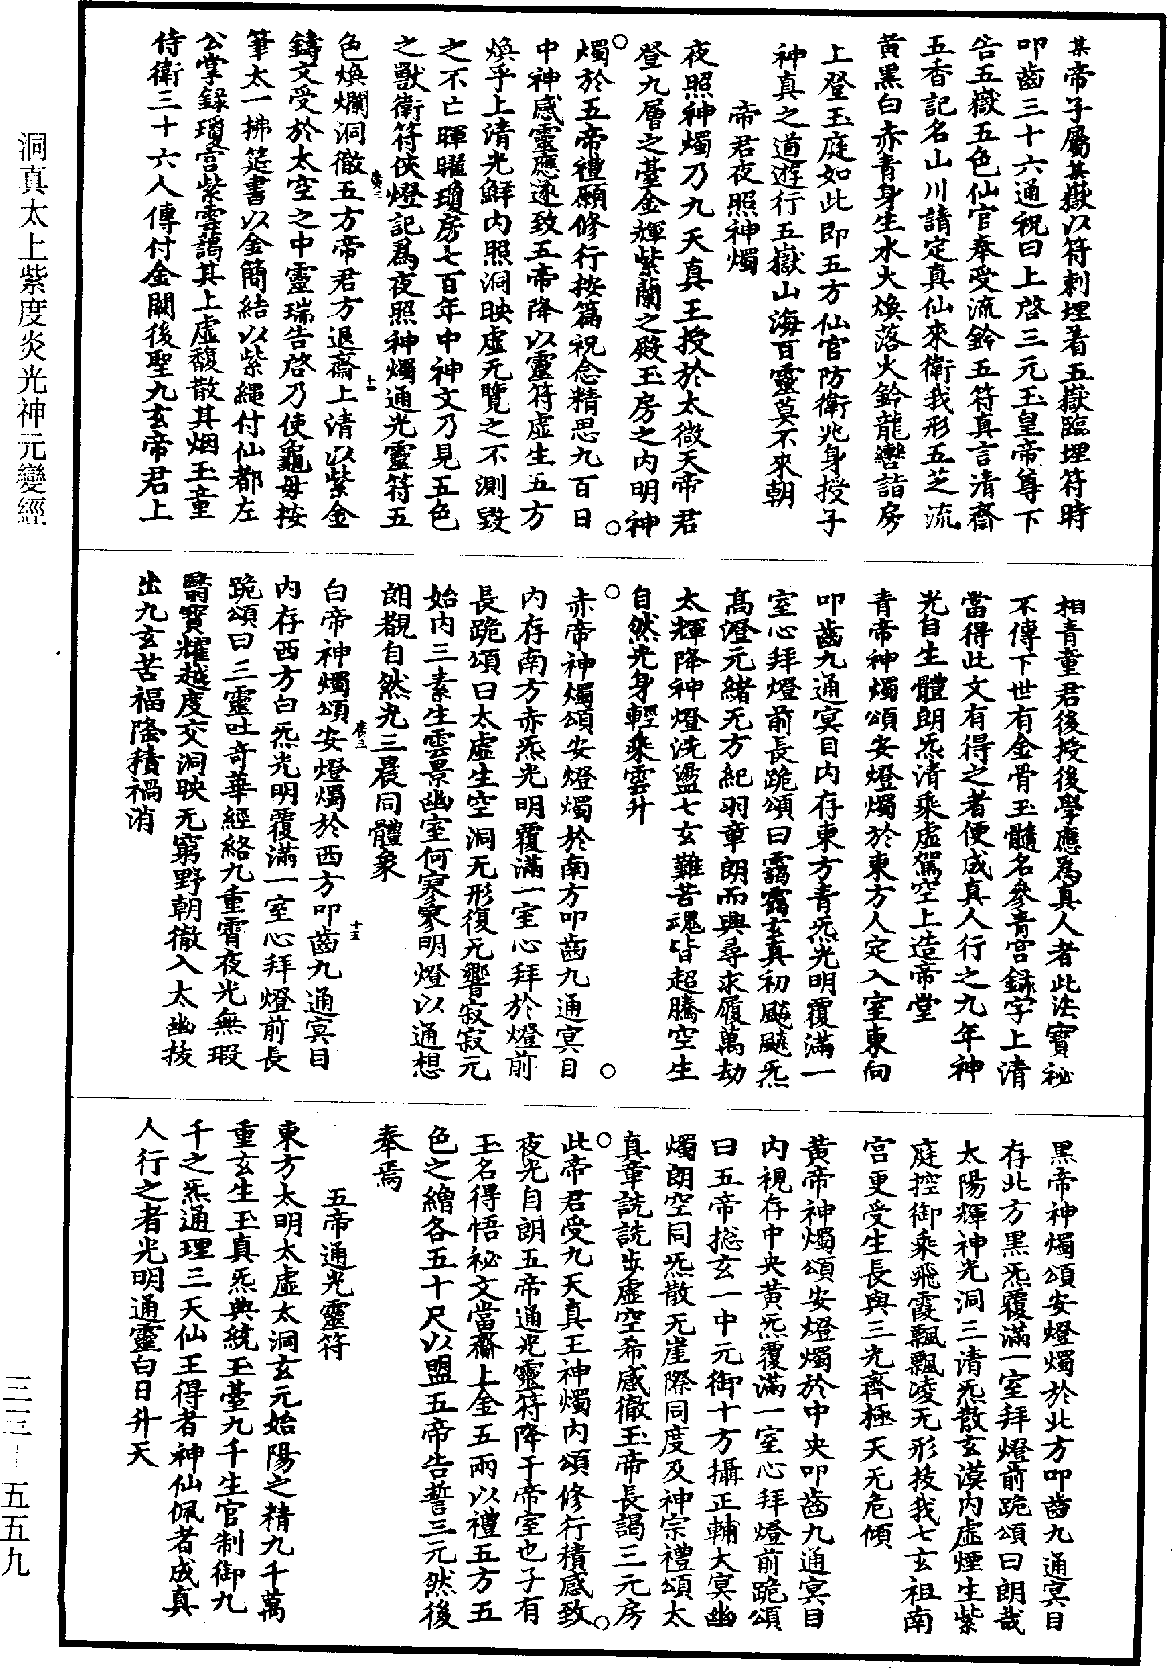 某帝子屬某嶽以符刺埋著五嶽臨埋符時
叩齒三十六通祝曰上啓三元玉皇帝尊下
告五嶽五色仙官奉受流鈴五符真言清齋
五香記名山川請定真仙來衛我形五芝流
黃黑白赤青身生水火煥落火鈴龍轡詣房
上登玉庭如此即五方仙官防衛兆身授子
神真之道遊行五嶽山海百靈莫不來朝
帝君夜照神燭
夜照神燭乃九天真王授於太微天帝君
登九層之臺金輝紫蘭之殿玉房之內明神
燭於五帝禮願修行按篇祝念精思九百日
中神感靈應遂致五帝降以靈符虛生五方
煥乎上清光鮮內照洞映虛无覽之不測毀
之不亡暉曜瓊房七百年中神文乃見五色
之獸衛符俠燈記爲夜照神燭通光靈符五
色煥爛洞徹五方帝君方退齋上清以紫金
鑄文受於太空之中靈瑞告啓乃使龜母按
筆太一拂筵書以金簡結以紫繩付仙都左
公掌錄瓊宮紫雲藹其上虛馥散其烟玉童
侍衛三十六人傳付金闕後聖九玄帝君上
相青童君後授後學應爲真人者此法寶祕
不傳下世有金骨玉髓名參青宮錄字上清
當得此文有得之者便成真人行之九年神
光自生體朗炁清乘虛駕空上造帝堂
青帝神燭頌安燈燭於東方人定入室東向
叩齒九通冥目內存東方青炁光明覆滿一
室心拜燈前長跪頌曰靄靄玄真初飈飈炁
高澄元緒无方紀羽章朗而興尋求履萬劫
太輝降神燈洗盪七玄難苦魂皆超騰空生
自然光身輕乘雲升
赤帝神燭頌安燈燭於南方叩齒九通冥目
內存南方赤炁光明覆滿一室心拜於燈前
長跪頌曰太虛生空洞无形復无響寂寂元
始內三素生雲景幽室何寥寥明燈以通想
朗覩自然光三晨同體象
白帝神燭頌安燈燭於西方叩齒九通冥目
內存西方白炁光明覆滿一室心拜燈前長
跪頌曰三靈吐奇華經絡九重霄夜光無瑕
翳寶耀越度交洞映无窮野朝徹入太幽拔
出九玄苦福隆積禍消
黑帝神燭頌安燈燭於北方叩齒九通冥目
存北方黑炁覆滿一室拜燈前跪頌曰朗哉
太陽輝神光洞三清炁散玄漠內虛煙生紫
庭控御乘飛霞飄飄凌无形拔我七玄祖南
宮更受生長與三光齊極天无危傾
黃帝神燭頌安燈燭於中央叩齒九通冥目
內視存中央黃炁覆滿一室心拜燈前跪頌
曰五帝揔玄一中元御十方攝正輔大冥幽
燭朗空同炁散无崖際同度及神宗禮頌太
真章詵詵步虛空希感徹玉帝長謁三元房
此帝君受九天真王神燭內頌修行積感致
夜光自朗五帝通光靈符降于帝室也子有
玉名得悟祕文當齋上金五兩以禮五方五
色之繒各五十尺以盟五帝告誓三元然後
奉焉
五帝通光靈符
東方太明太虛太洞玄元始陽之精九千萬
重玄生玉真炁典統玉臺九千生官制御九
千之炁通理三天仙王得者神仙佩者成真
人行之者光明通靈白日升天
洞真太上紫度炎光神元變經
三三—五五九